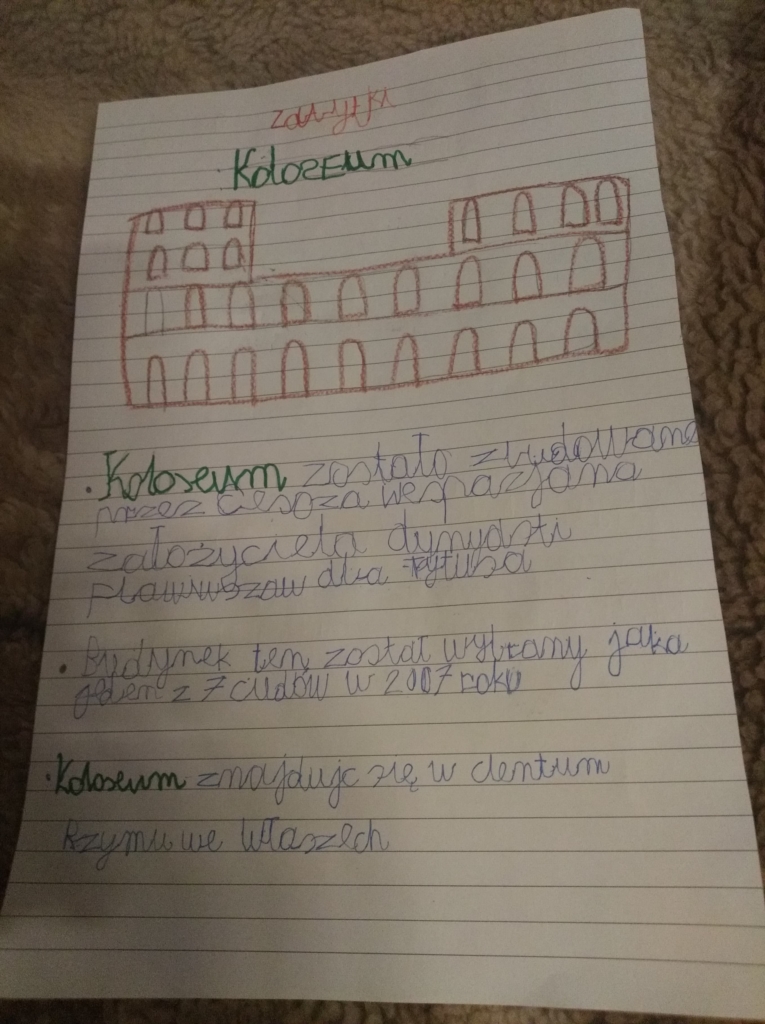 zabytki
KolosEum
• Koloseum zostało zbudowane
przez cesoza wespazjana
założyciela dynydsti
dla tytusa
• Budynek ten został wybrany jaka
jeden z 7 cudów w 2007 roku
• Koloseum znajduje się w clentrum
Rzymu we Włoszech